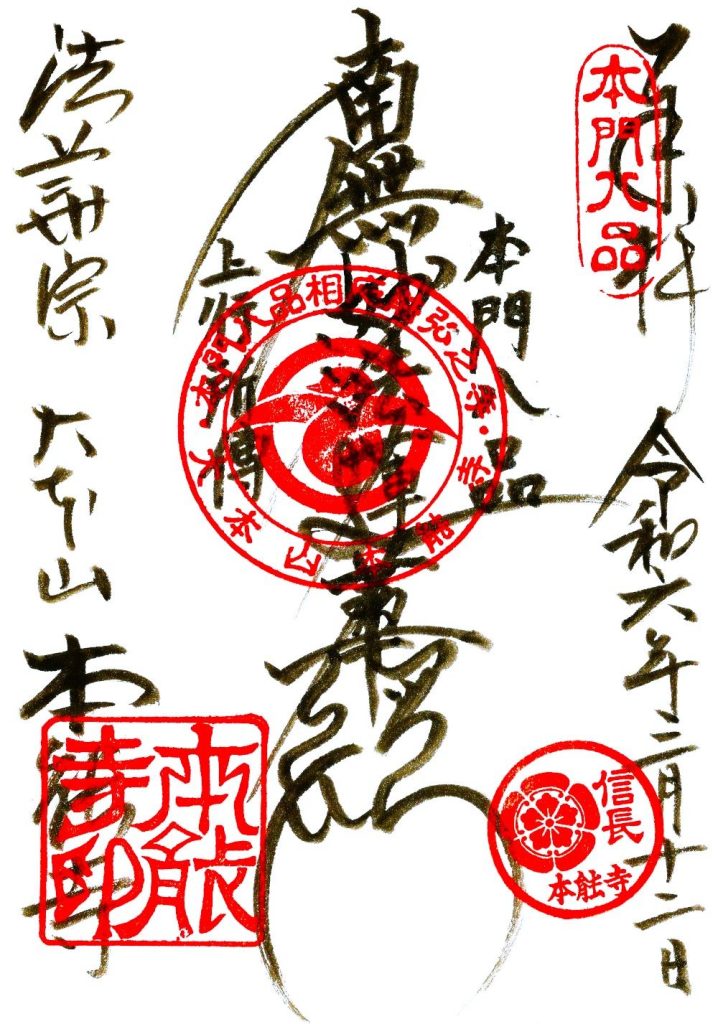 奉拝
本門八品
令和六年三月十二日
本門八品
南無妙法蓮華経
上行所傳
大本山本能寺・本門八品相応弘之寺・
信長
本能寺
法華宗 大本山 本能寺
本能寺印